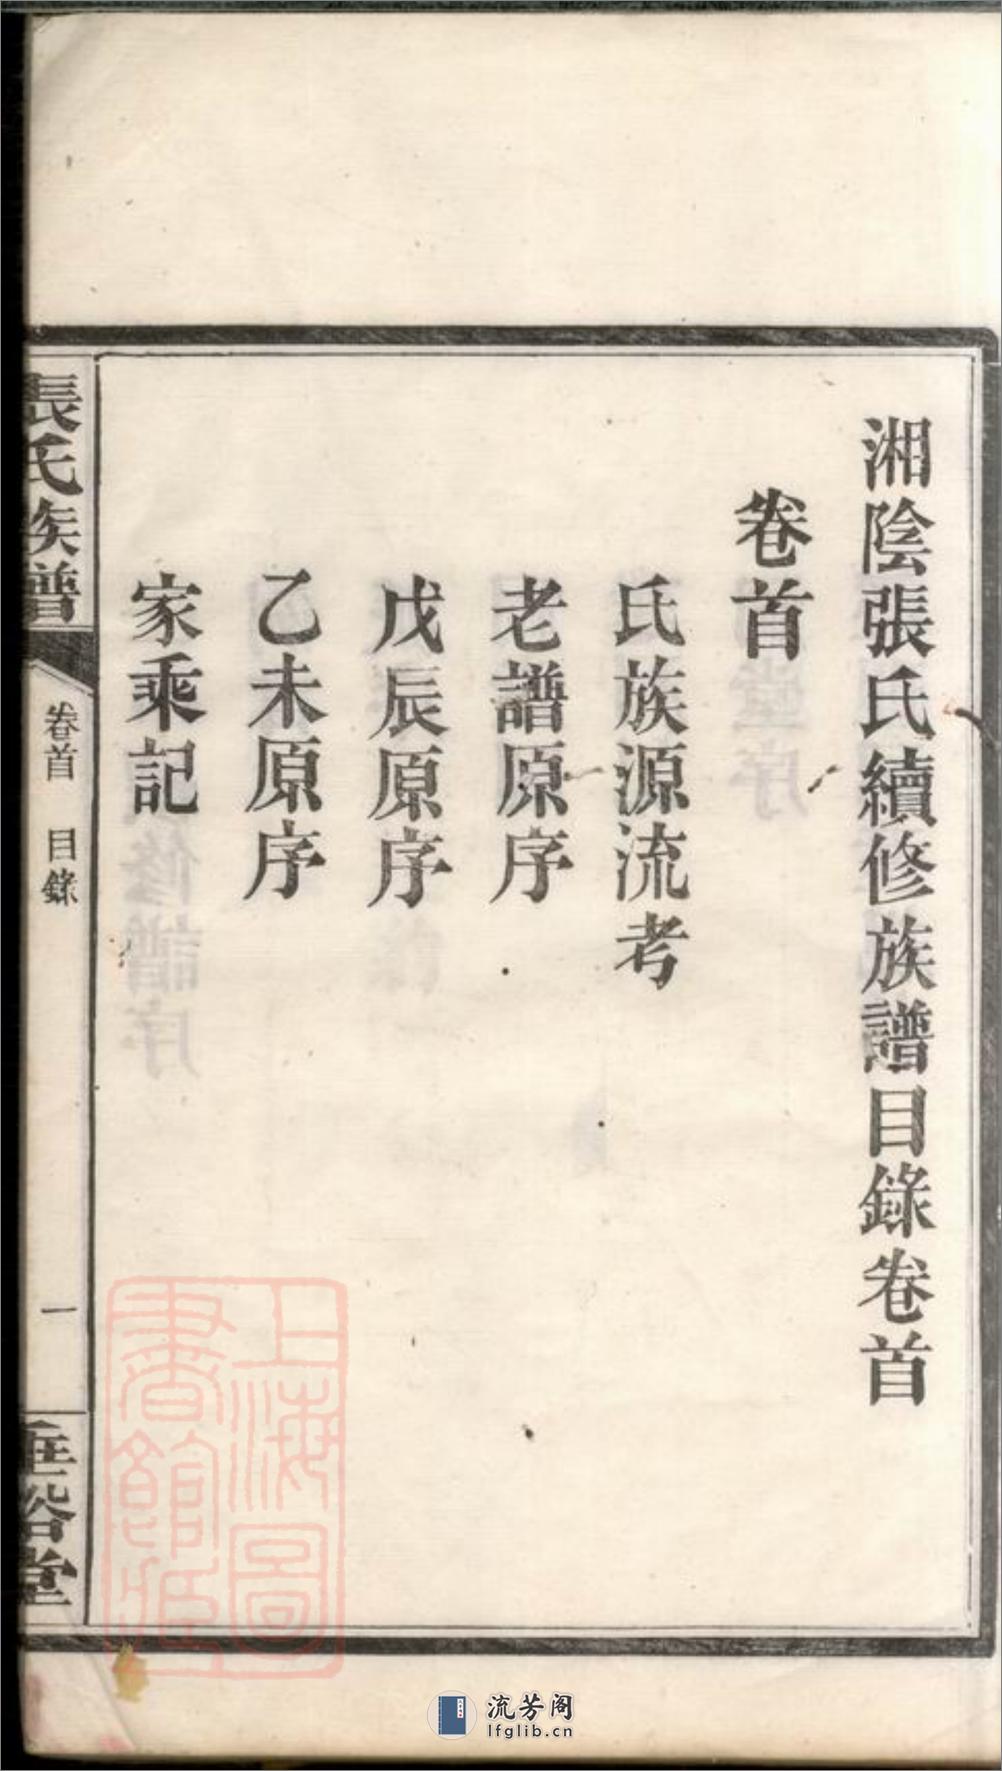 湘陰張氏續修族譜目錄卷首
卷首
氏族源流考
老譜原序
戊辰原序
乙未原序
家乘記
張氏族譜
卷首 目錄
一
垂裕堂
上海圖
書館藏
流芳阁
lfglib.cn